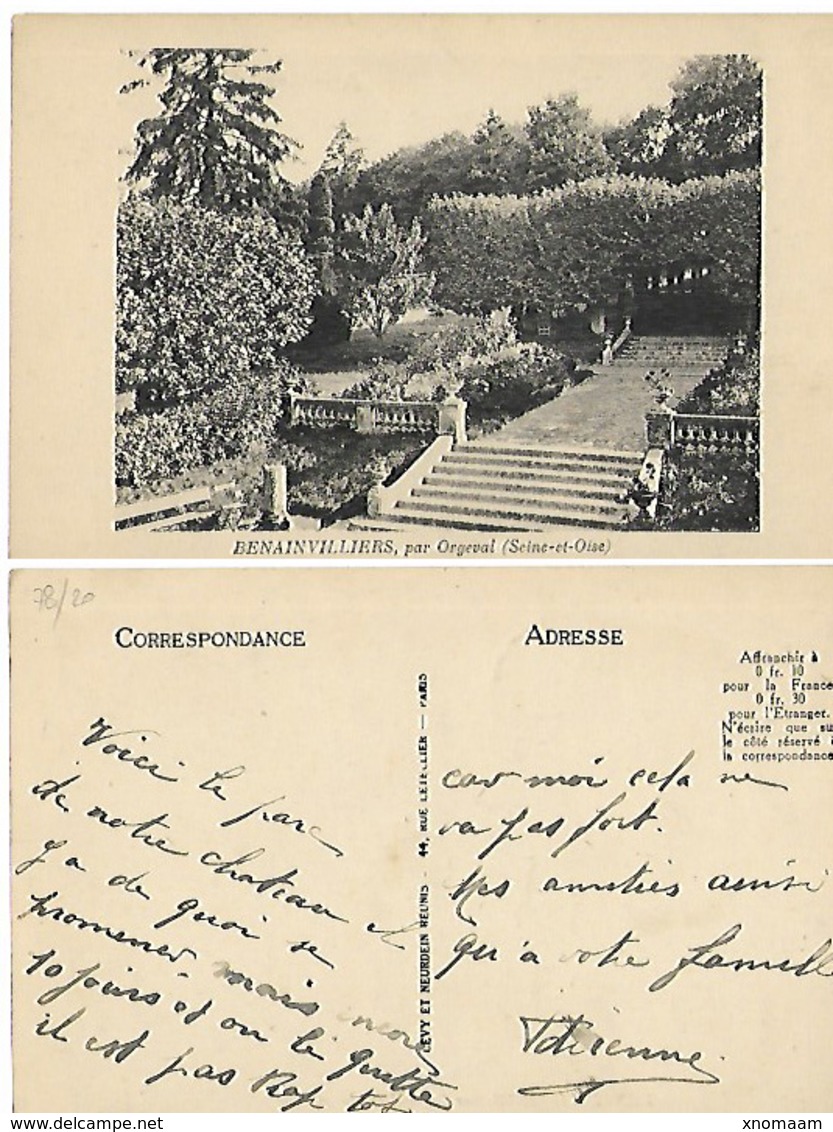 BENAINVILLIERS, par Orgeval (Seine-et-Oise)
78/20
CORRESPONDANCE
ADRESSE
Affranchir à
0 fr. 10
pour la France
0 fr. 30
pour l'Etranger.
N'écrire que sur
le côté réservé à
la correspondance
LEVY ET NEURDEIN RÉUNIS - 44, RUE LETELLIER — PARIS
Voici le parc
de notre chateau il
y a de quoi se
promener, mais encore
10 jours et on le quitte
il est pas tot
car moi cela ne
va pas fort.
Mes amitiés ainsi
qu'a votre famille
xnomaam